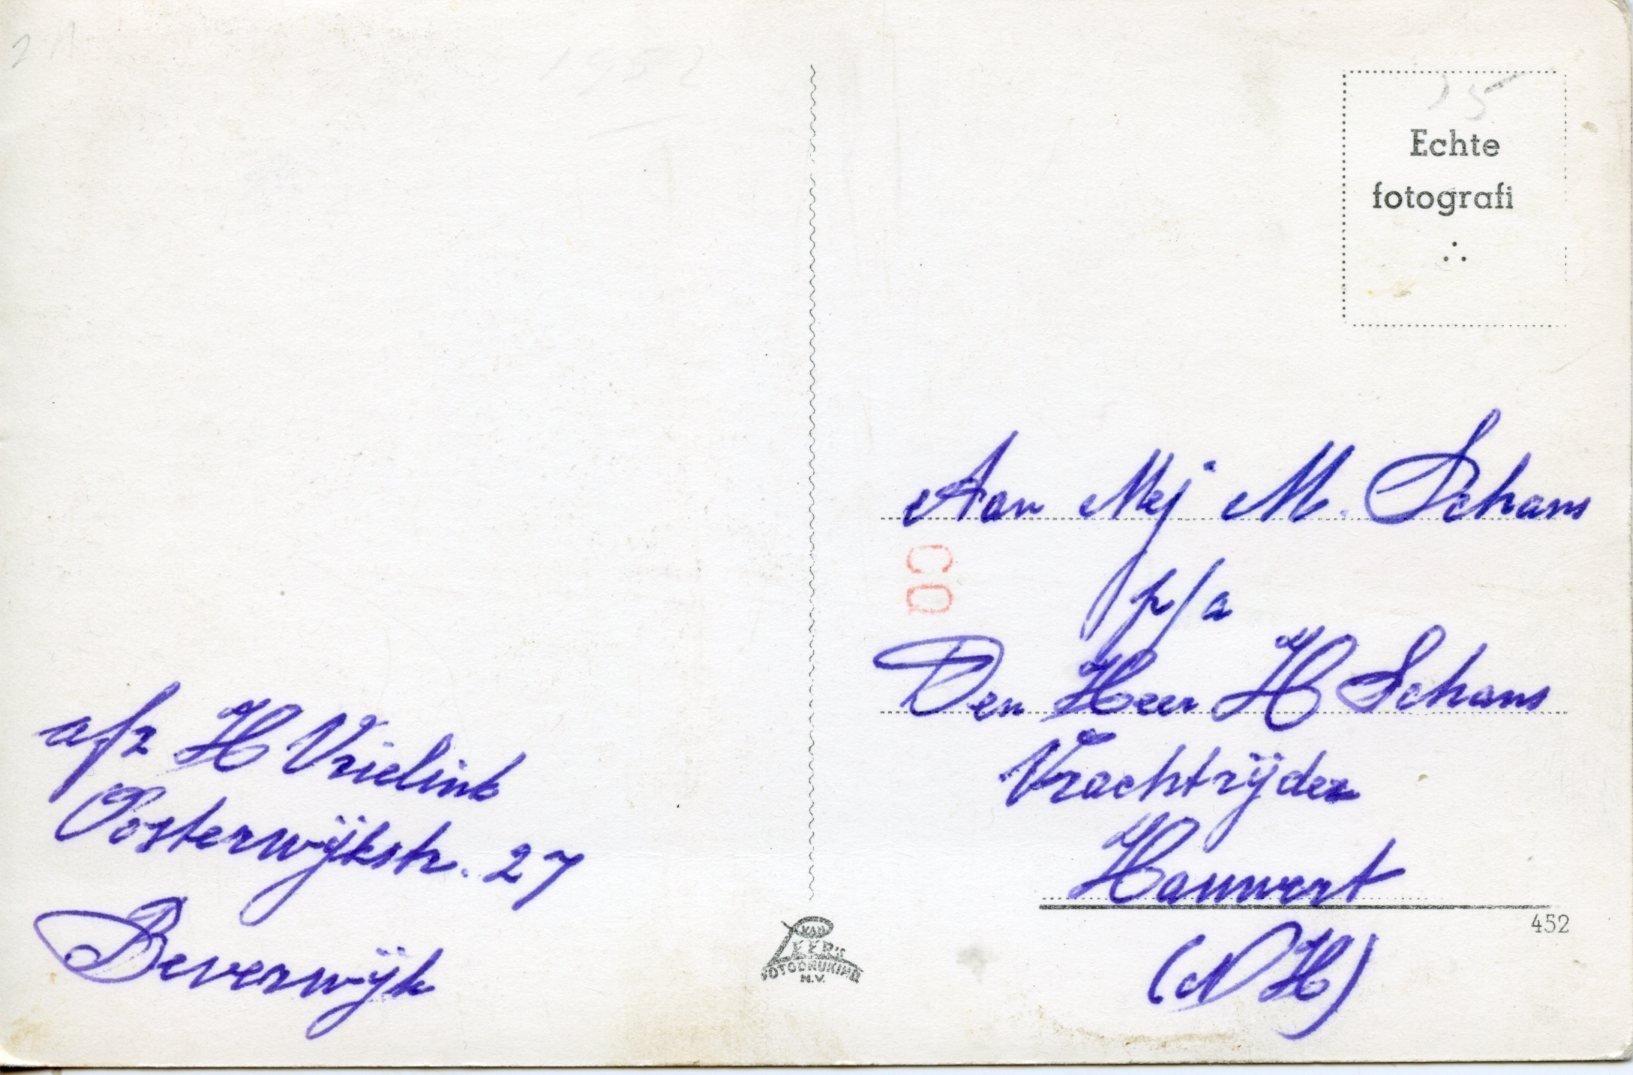 1952
Echte
fotografi
Aan Mej M. Schans
p/a
Den Heer H Schans
Vrachtrijder
Hauwert
(NH)
afz H Vrielink
Oosterwijkstr. 27
Beverwijk
CQ
VAN
LEER'S
FOTODRUKIND
N.V.
452